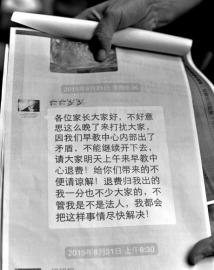 各位家长大家好，不好意
思这么晚了来打扰大家，
因我们早教中心内部出了
矛盾，不能继续开下去，
请大家明天上午来早教中
心退费！给你们带来的不
便请谅解！退费归我出的
我一分也不少大家的，不
管我是不是法人，我都会
把这样事情尽快解决！
2015年8月31日 上午6:30